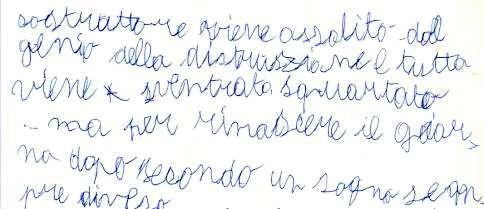 sostrattore viene assalito dal
genio della distruzione e tutta
viene sventrata squartato
.. ma per rinascere il gior,
no dopo secondo un sogno sem,
pre diverso